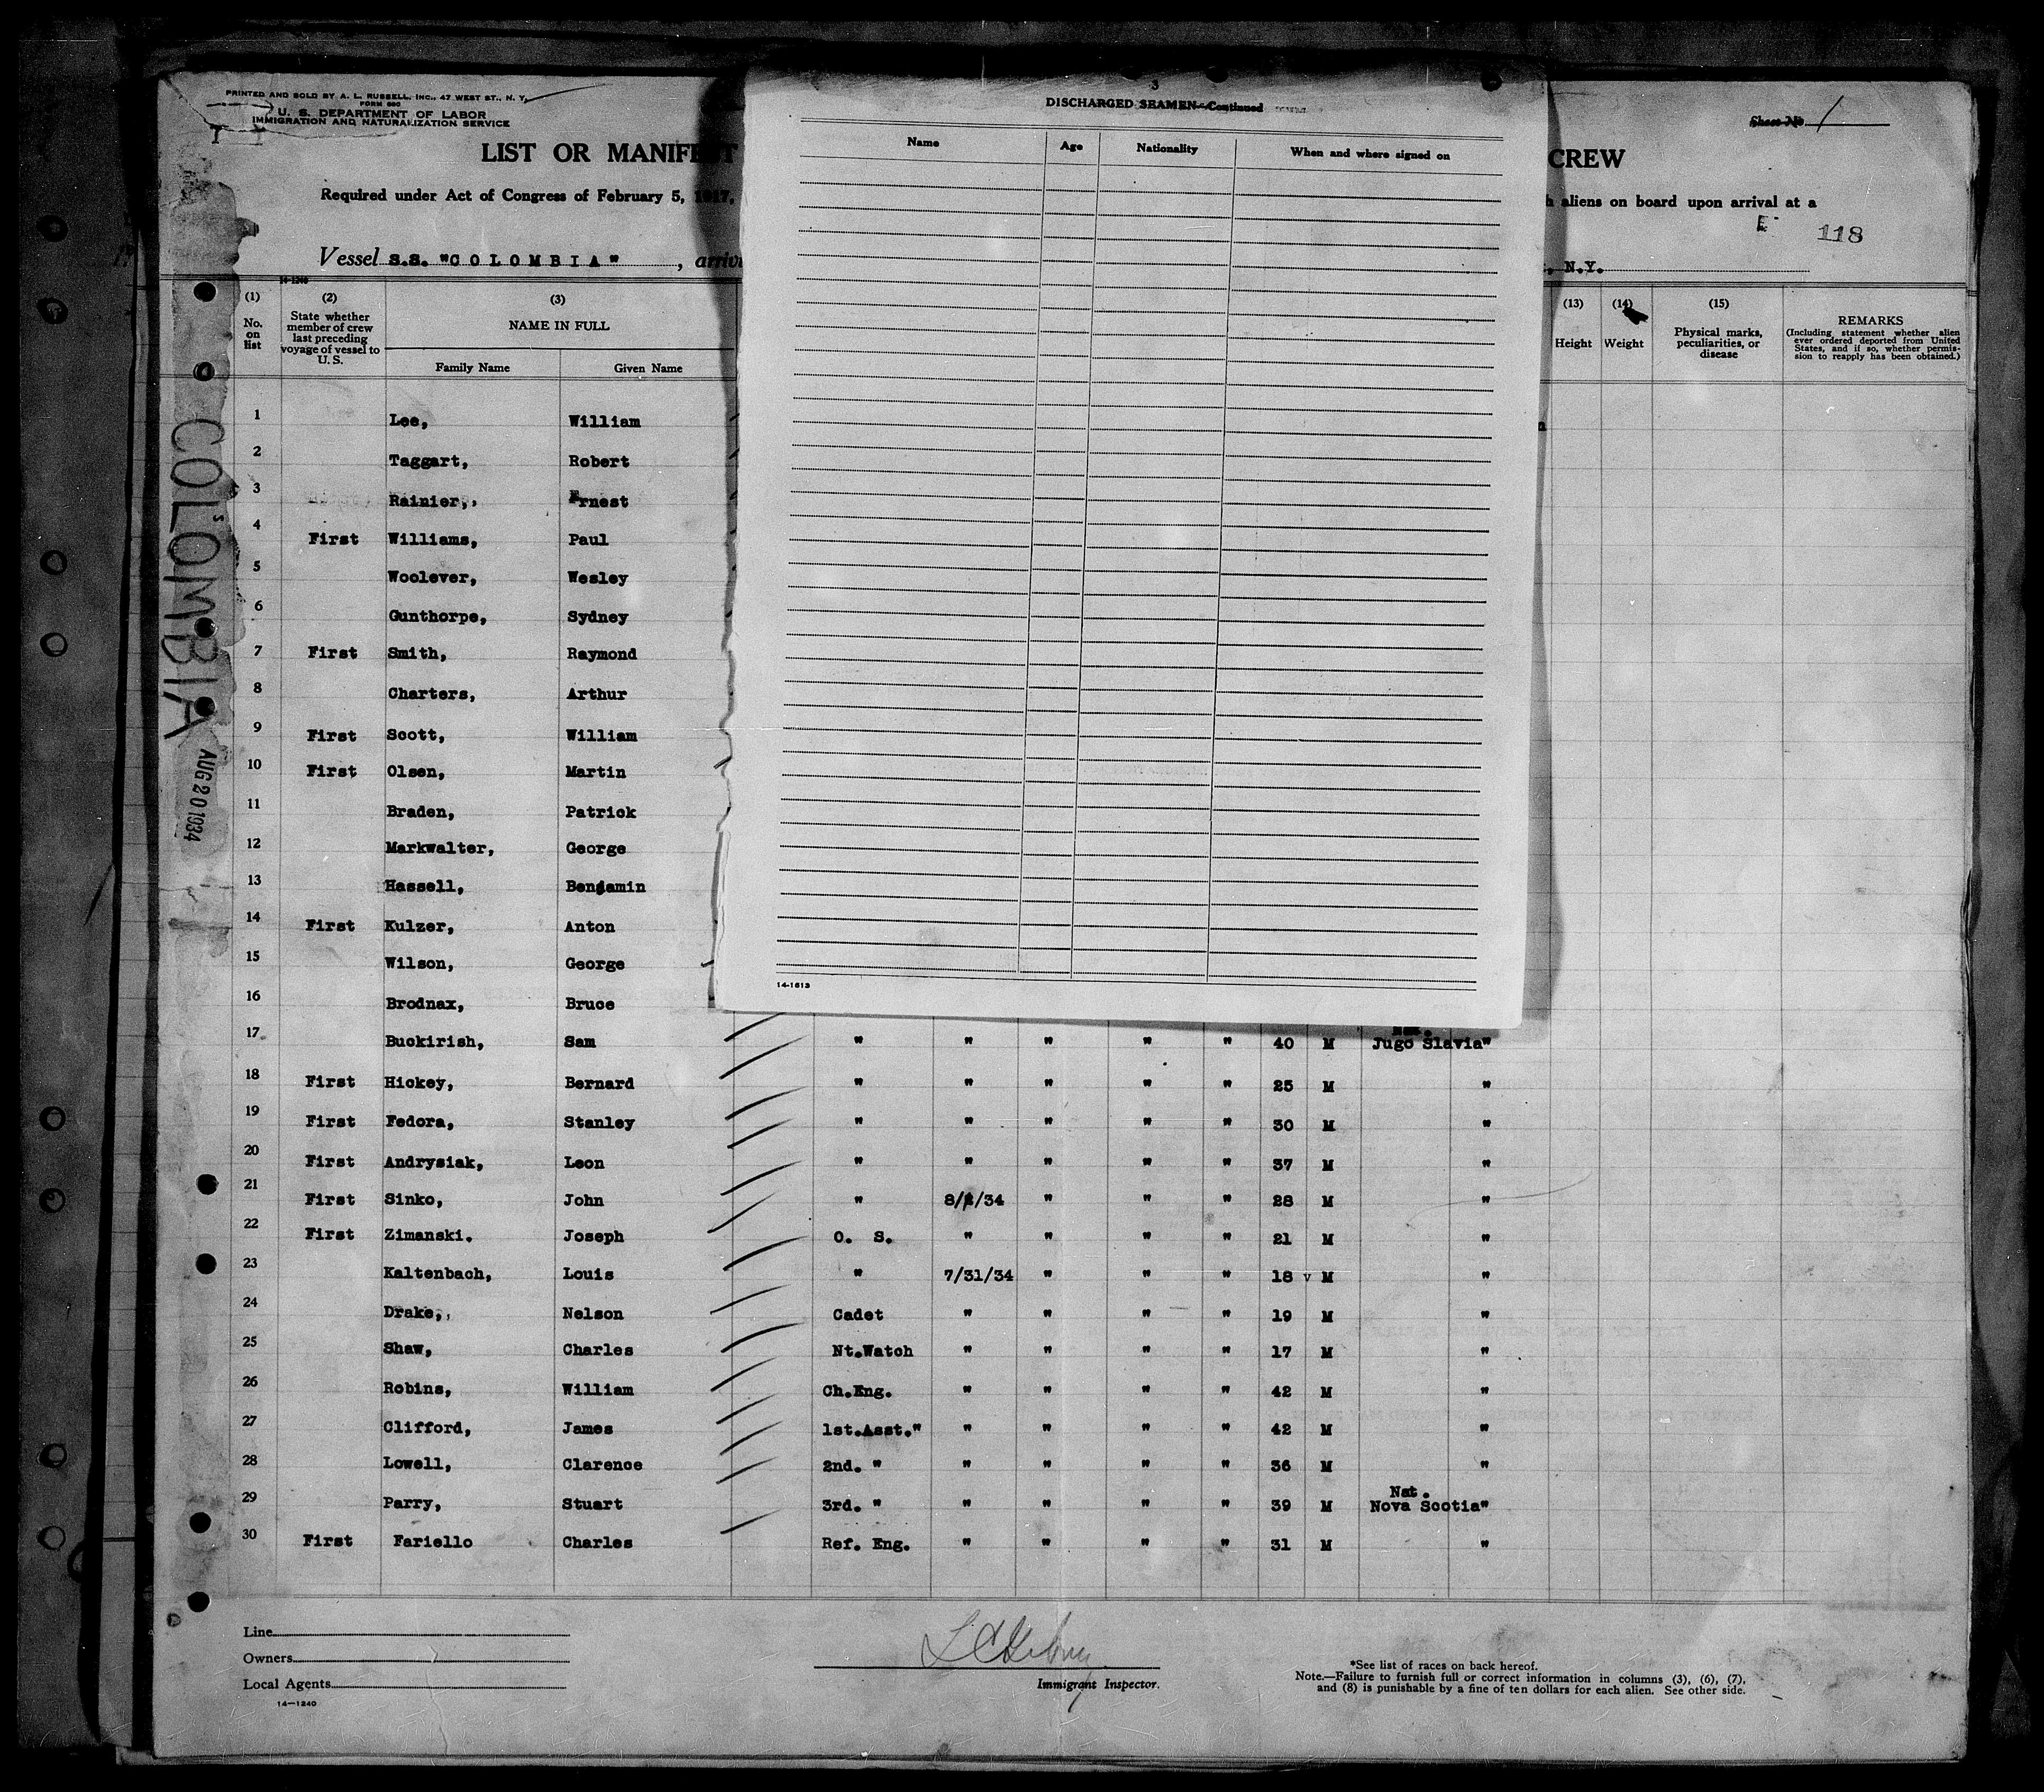 PRINTED AND SOLD BY A. L. RUSSELL, INC., 47 WEST ST., N. Y.
FORM 680
U. S. DEPARTMENT OF LABOR
IMMIGRATION AND NATURALIZATION SERVICE
LIST OR MANIFEST
Required under Act of Congress of February 5, 1917,
Vessel S.S. "COLOMBIA", arriv
3
DISCHARGED SEAMEN—Continued
Name Age Nationality When and where signed on
14-1613
Sheet No 1
CREW
h aliens on board upon arrival at a
E 118
, N.Y.
14-1240
(1) No. on list
(2) State whether member of crew last preceding voyage of vessel to U. S.
(3) NAME IN FULL
Family Name Given Name
(13) Height
(14) Weight
(15) Physical marks, peculiarities, or disease
REMARKS
(Including statement whether alien ever ordered deported from United States, and if so, whether permission to reapply has been obtained.)
COLOMBIA
AUG 20 1934
1 Lee, William
2 Taggart, Robert
3 Rainier, Ernest
4 First Williams, Paul
5 Woolever, Wesley
6 Gunthorpe, Sydney
7 First Smith, Raymond
8 Charters, Arthur
9 First Scott, William
10 First Olsen, Martin
11 Braden, Patrick
12 Markwalter, George
13 Hassell, Benjamin
14 First Kulzer, Anton
15 Wilson, George
16 Brodnax, Bruce
17 Buckirish, Sam " " " " " 40 M Jugo Slavia"
18 First Hickey, Bernard " " " " " 25 M "
19 First Fedora, Stanley " " " " " 30 M "
20 First Andrysiak, Leon " " " " " 37 M "
21 First Sinko, John " 8/2/34 " " " 28 M "
22 First Zimanski. Joseph O. S. " " " " 21 M "
23 Kaltenbach, Louis " 7/31/34 " " " 18 v M "
24 Drake, Nelson Cadet " " " " 19 M "
25 Shaw, Charles Nt.Watch " " " " 17 M "
26 Robins, William Ch.Eng. " " " " 42 M "
27 Clifford, James 1st.Asst." " " " " 42 M "
28 Lowell, Clarence 2nd. " " " " " 36 M "
29 Parry, Stuart 3rd. " " " " " 39 M Nat. Nova Scotia"
30 First Fariello Charles Ref. Eng. " " " " 31 M "
Line
Owners
Local Agents
14—1240
Immigrant Inspector.
*See list of races on back hereof.
Note.—Failure to furnish full or correct information in columns (3), (6), (7),
and (8) is punishable by a fine of ten dollars for each alien. See other side.